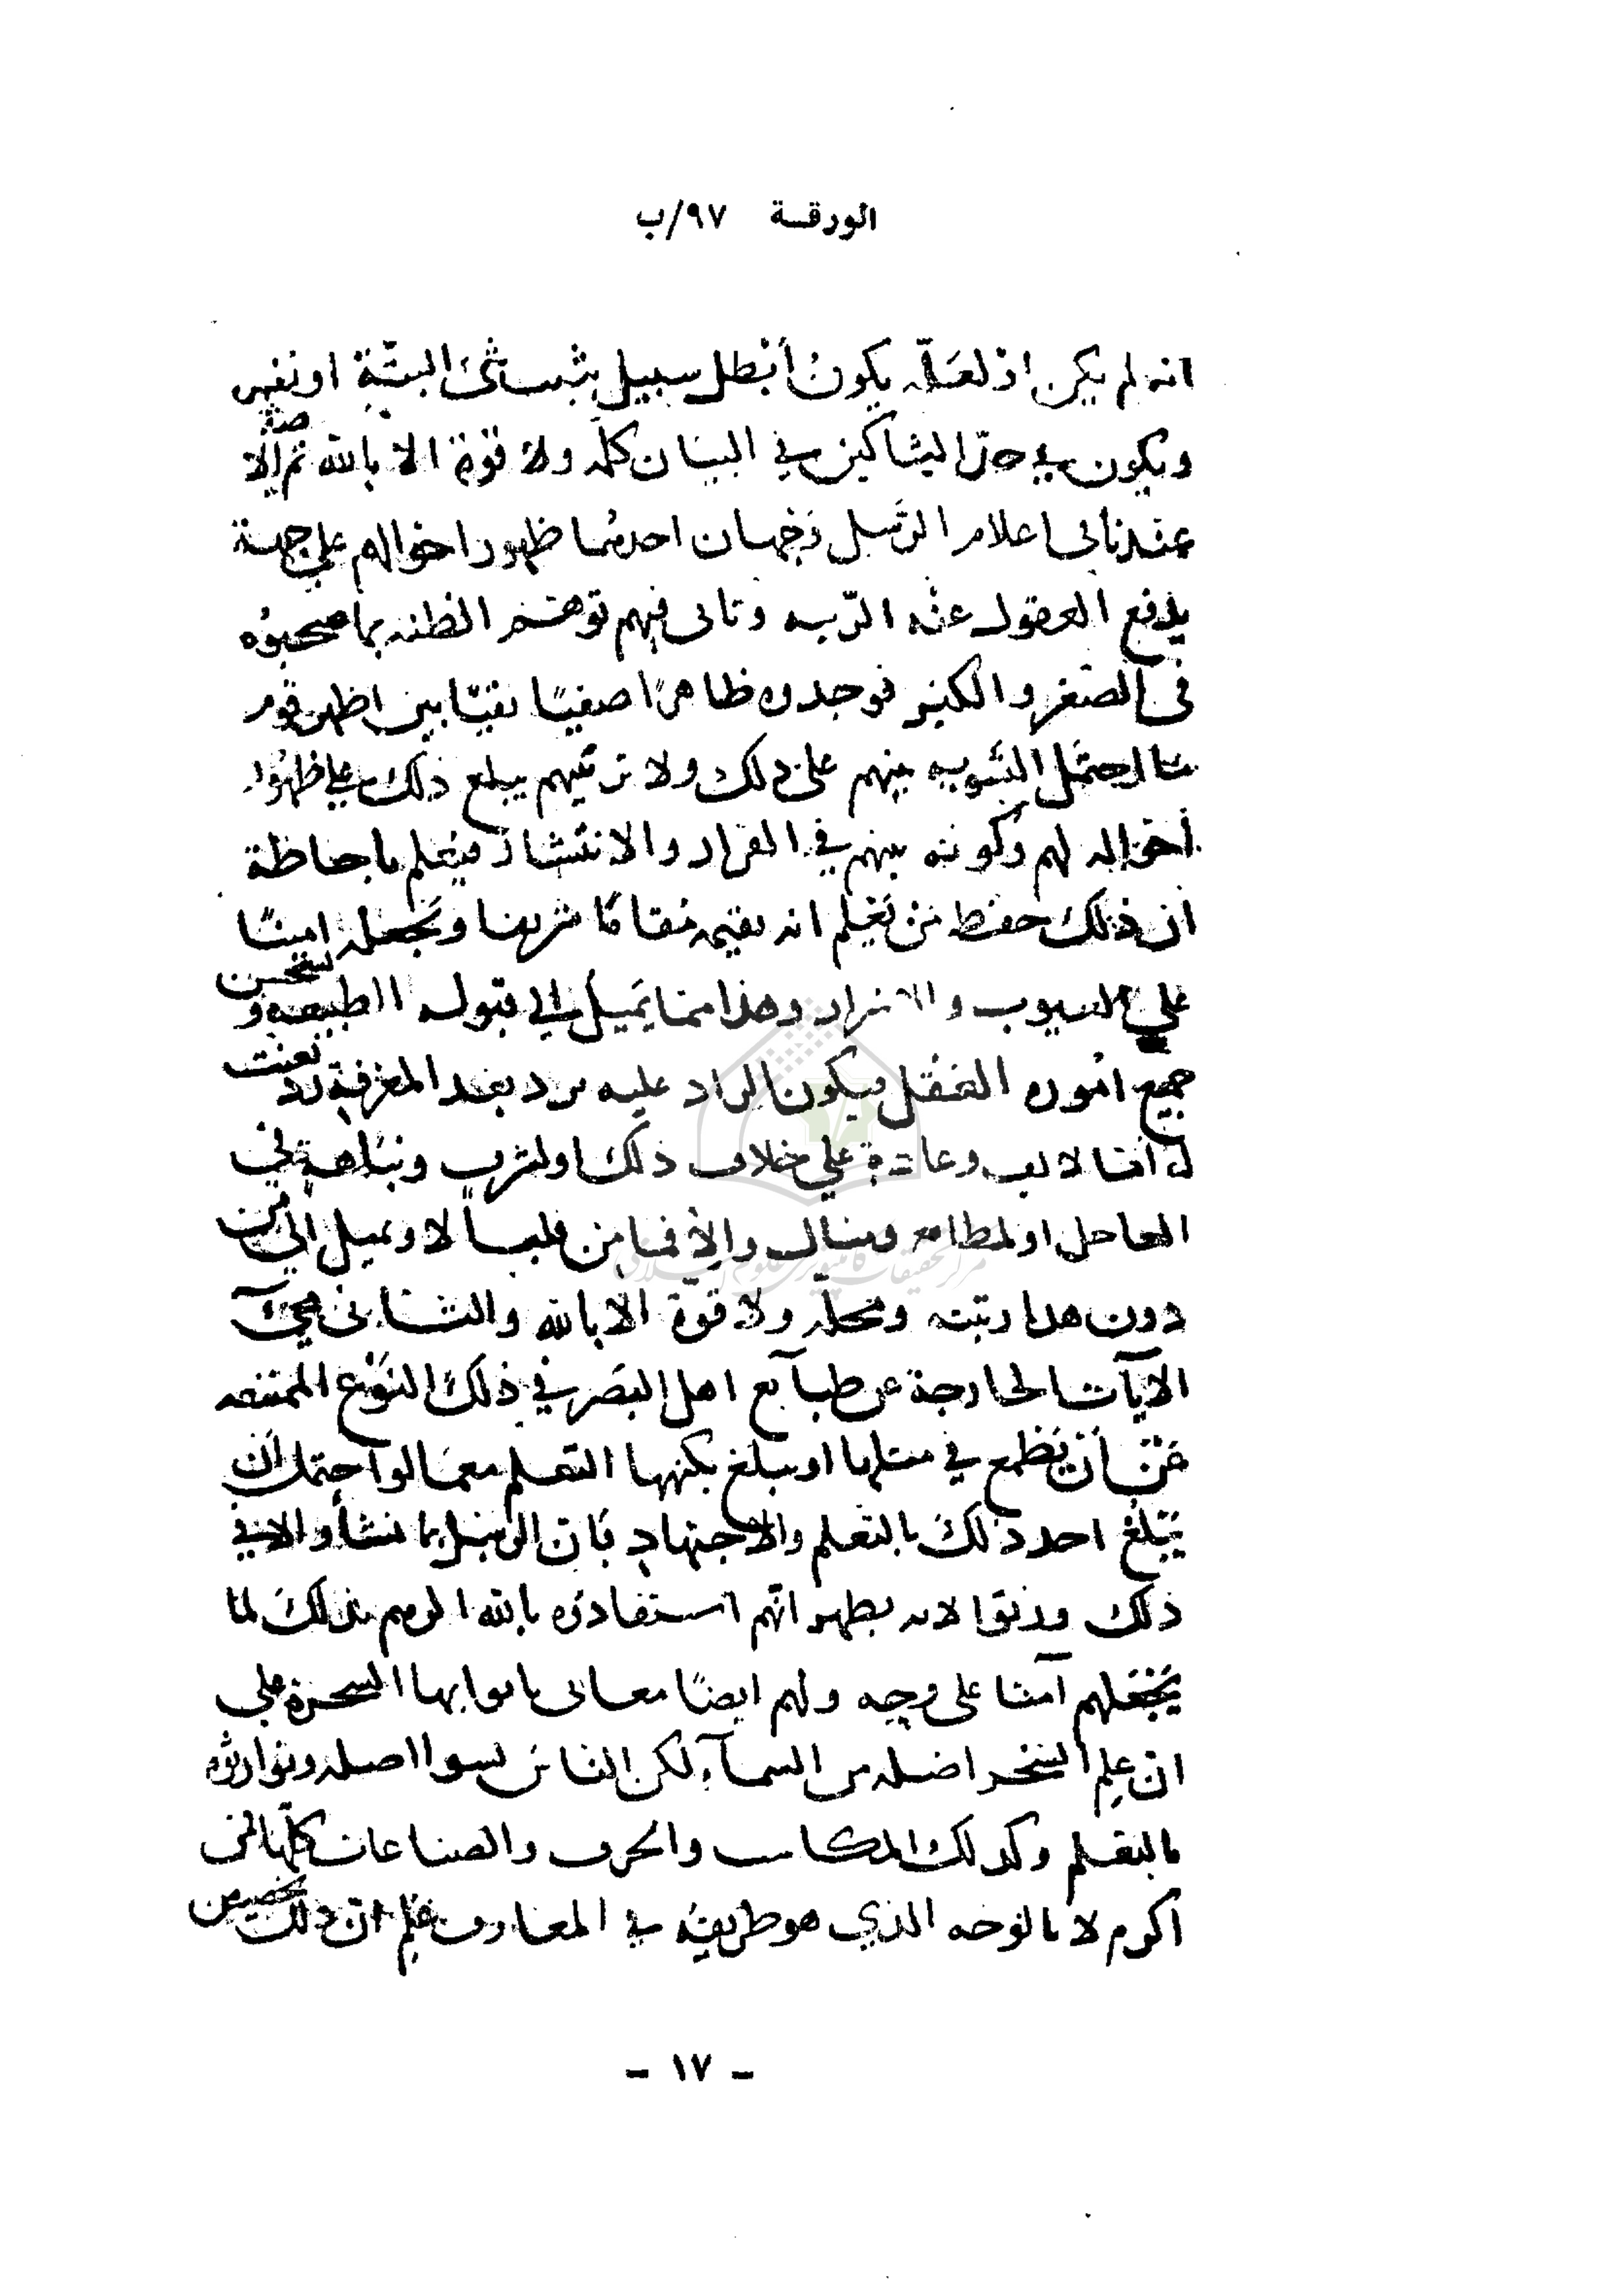 الورقة ٩٧/ب
انه لم يكن اذ لعله يكون أبطل سبيل يثبت شئ البتة او نفي
ويكون في حد الشاكين في البيان كله ولا قوة الا بالله ثم الا
عندنا في اعلام الرسل وجهان احدهما ظهور احوالهم على جهة
يدفع العقول عنه الريبه وتابى فيهم توهم الظنه بما صحبوه
في الصغر والكبر فوجدوه ظاهرا صفيا نقيا بين اظهر قوم
ما احتمل التسويه بينهم على ذلك ولا تربيتهم يبلغ ذلك على ظهور
أحواله لهم وكونه بينهم في القرار والانتشار فيعلم باحاطة
ان ذلك حفظ من يعلم انه يقيمه مقاما شريفا ويجعله امينا
على الغيوب والاسرار وهذا مما يميل الى قبوله الطبيعه و
يستحسن
جميع اموره العقل فيكون الراد عليه يرد بعد المعرفة رد
تعنت
له اما لالف وعادة على خلاف ذلك او لشرف ونباهة في
العاجل او لمطامع ومنال والا فما من قلب الا ويميل الى من
دون هذا رتبته ومحله ولا قوة الا بالله والثاني مجئ
الآيات الخارجة عن طبائع اهل البصر في ذلك النوع الممتنعه
عن أن يطمع في مثلها او يبلغ بكنهها التعلم مع ما لو احتمل ان
يبلغ احد ذلك بالتعلم والاجتهاد فان الرسل بما نشأوا لا في
ذلك وربوا لا به يظهر انهم استفادوه بالله اكرمهم بذلك لما
يجعلهم أمنا على وحيه ولهم ايضا معاني بانوا بها السحرة على
ان علم السحر اصله من السماء لكن الناس نسوا اصله وتوارثوه
بالتعلم وكذلك المكاسب والحرف والصناعات كلها فمن
اكرم لا بالوجه الذي هو طريقه في المعارف علم ان ذلك تخصيص من
- ١٧ -